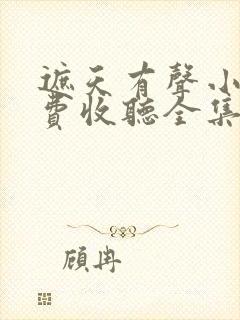 遮天有聲小
費收聽全集
顧冉